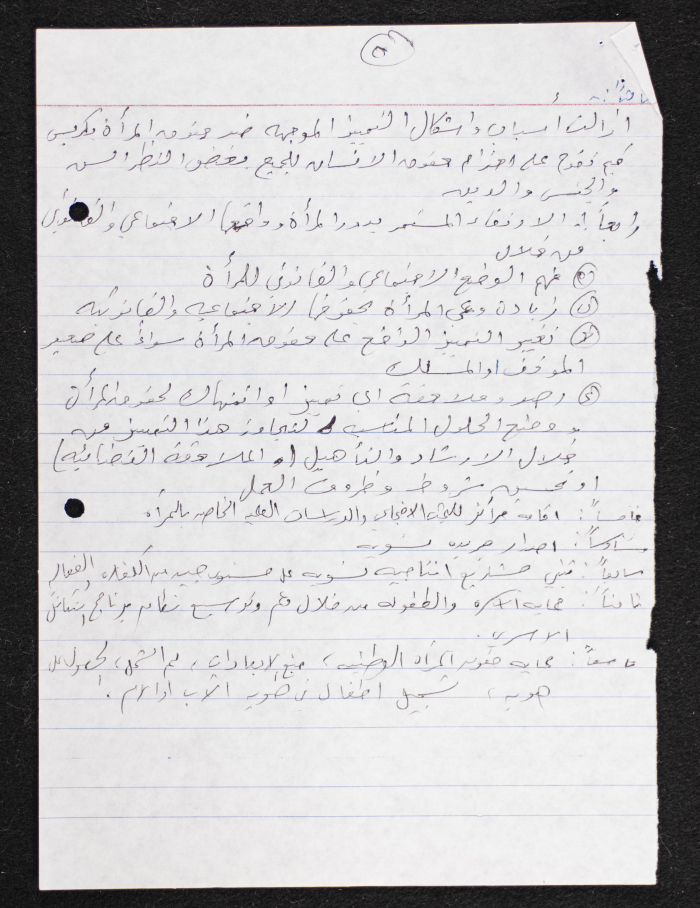 ٥
ثالثاً:
ازالة أسباب واشكال التمييز الموجهه ضد حقوق المرأة بتكريس
قيم تقوم على احترام حقوق الانسان للجميع بغض النظر السن
والجنس والدين
رابعاً: الارتقاء المستمر بدور المرأة وواقعها الاجتماعي والقانوني
من خلال
فهم الوضع الاجتماعي والقانوني للمرأة
زيادة وعي المرأة بحقوقها الاجتماعيه والقانونيه
تغيير التمييز الواقع على حقوق المرأة سواءً على صعيد
الموقف او المسلك
رصد وملاحقة اي تمييز او انتهاك لحقوق المرأة
ووضع الحلول المناسبه لتجاوز هذا التمييز من
خلال الارشاد والتأهيل (او الملاحقة القضائيه)
او تحسين شروط وظروف العمل
خامساً: اقامه مراكز للبحث والدراسات العلميه الخاصه بالمرأه
سادساً: اصدار جريده نسويه
سابعاً: تبني مشاريع انتاجيه نسويه على مستوى جيد من الكفاءه والفعاليه
ثامناً: حمايه الاسره والطفوله من خلال دعم وتوسيع نظام برنامج التكافل
الاسري.
تاسعاً: حمايه حقوق المرأه الوطنيه، منع الابعادات، لم الشمل، الحصول على
هويه، تسجيل اطفال في هويه الاب او الام.